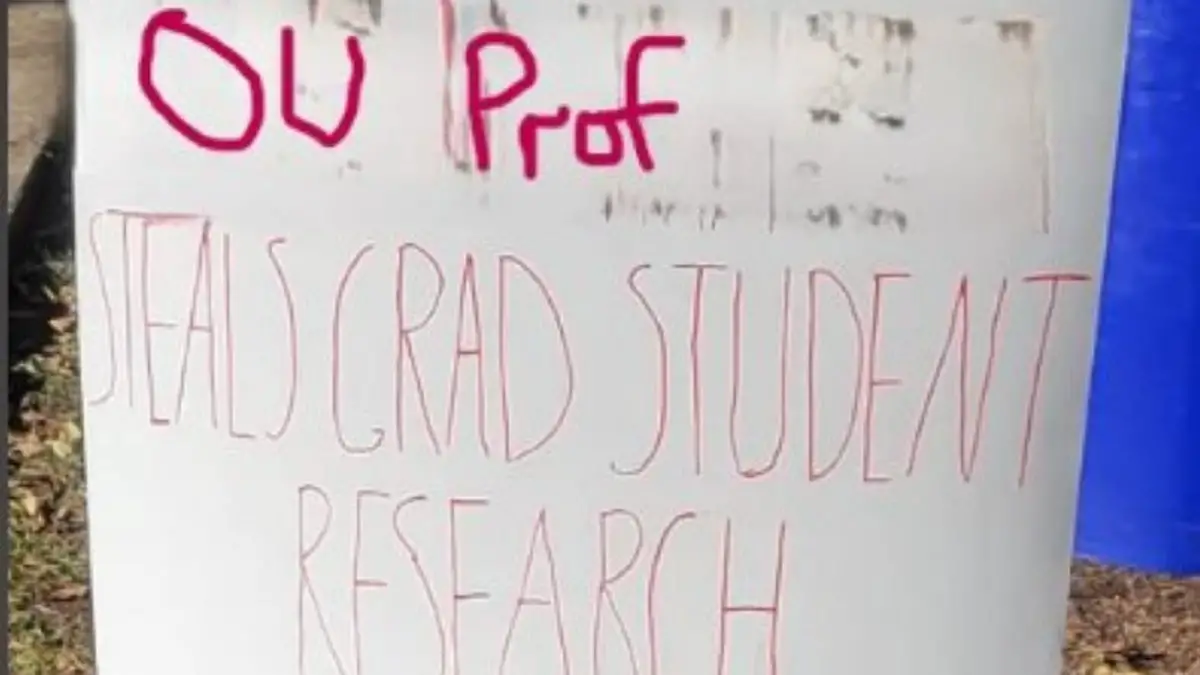 OU Prof
STEALS GRAD STUDENT
RESEARCH